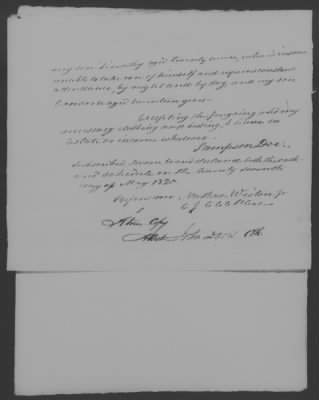 my son Timothy aged twenty seven, who is insane
unable to take care of himself and requires constant
attendance, by night and by day, and my son
aged seventeen years.
Excepting the foregoing and my
necessary clothing and beding, I have no
Estate or income whatever.
Sampson Doe.
Subscribed, sworn to and declared both the oath
and schedule on the twenty seventh
day of May 1820.
Before me Nathan Weston Jr
C J C C C Pleas
A true Copy
Attest John Davis Clk